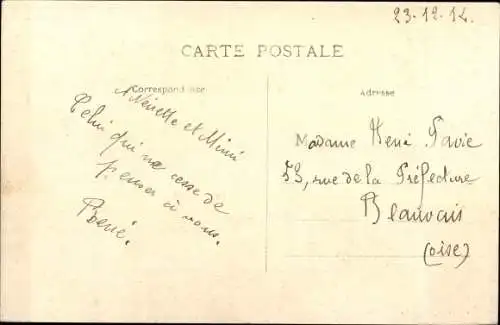 23-12-14.
CARTE POSTALE
Correspondance
Adresse
Ninette et Mimi
Celui qui ne cesse de
penser à vous.
René.
Madame René Pavie
53, rue de la Préfecture
Beauvais
(oise)